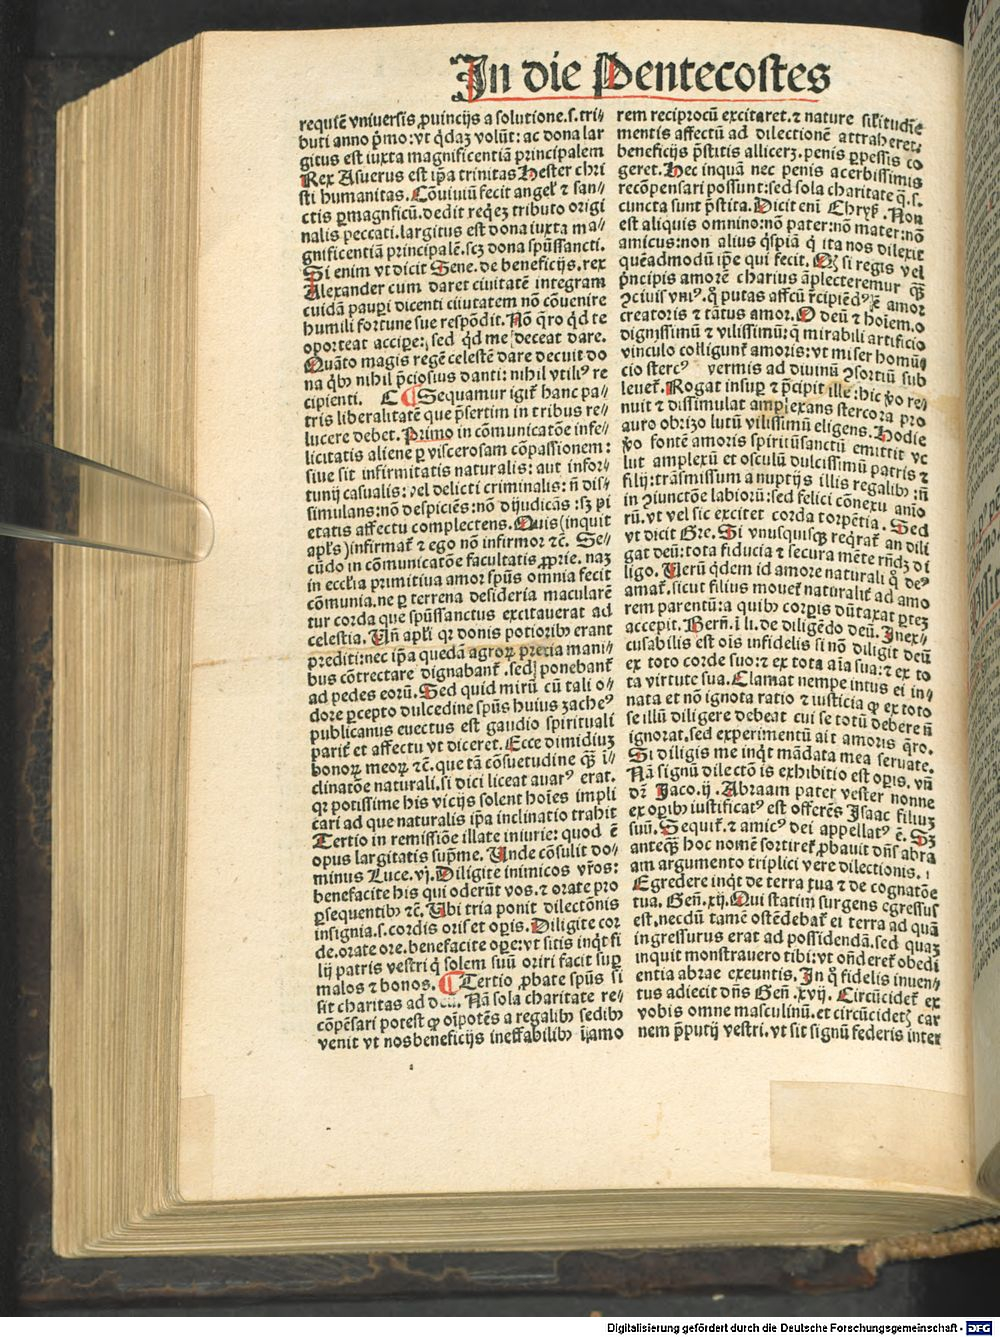 In die Pentecostes
requiē vniuersis ꝓuincijs a solutione.s.tri⸗
buti anno p̄mo:vt q̇daꝫ volūt: ac dona lar
gitus est iuxta magnificentiā principalem
Rex Asuerus est ip̄a trinitas Hester chri
sti humanitas. Cōuiuiū fecit angeꝉ ⁊ san⸗
ctis ꝑmagnficū.dedit reqͥeꝫ tributo origi
nalis peccati.largitus est dona iuxta ma⸗
gnificentiā principalē.scꝫ dona spūssancti.
Si enim vt dicit Sene. de beneficijs.rex
Alexander cum daret ciuitatē integram
cuidā pauꝑi dicenti ciuitatem nō cōuenire
humili fortune sue respōdit. Nō q̄ro qͥd te
oporteat acciꝑe: sed qͥd me deceat dare.
Quāto magis regē celestē dare decuit do
na qͥbꝰ nihil p̄ciosius danti: nihil vtiliꝰ re
cipienti. C Sequamur igiť hanc pa⸗
tris liberalitatē que p̄sertim in tribus re⸗
lucere debet. Primo in cōmunicatōe infe⸗
licitatis aliene ꝑ viscerosam cōpassionem:
siue sit infirmitatis naturalis: aut infor⸗
tunij casualis: vel delicti criminalis: n̄ dis⸗
simulans:nō despiciēs:nō dijudicās :sꝫ pi
etatis affectu complectens. Quis(inquit
apl̄s)infirmať ⁊ ego nō infirmor ⁊c̄. Se⸗
cūdo in cōmunicatōe facultatis ꝓprie. naꝫ
in eccl̄ia primitiua amor spūs omnia fecit
cōmunia.ne ꝑ terrena desideria macularē
tur corda que spūssanctus excitauerat ad
celestia. Uñ apl̄i qꝛ donis potioribꝰ erant
prediti:nec ip̄a quedā agroꝝ precia mani⸗
bus cōtrectare dignabanť .sed ponebanť
ad pedes eorū. Sed quid mirū cū tali o⸗
dore ꝑcepto dulcedine spūs huius zacheꝰ
publicanus euectus est gaudio spirituali
pariť et affectu vt diceret. Ecce dimidiuꝫ
bonoꝝ meoꝝ ⁊c̄. que tā cōsuetudine qꝫ̄ ī⸗
clinatōe naturali.si dici liceat auarꝰ erat.
qꝛ potissime his vicijs solent hoīes impli
cari ad que naturalis ip̄a inclinatio trahit
Tertio in remissiōe illate iniurie: quod ē
opus largitatis sup̄me. Unde cōsulit do⸗
minus Luce.vj. Diligite inimicos vr̄os:
benefacite his qui oderūt vos.⁊ orate pro
ꝑsequentibꝰ ⁊c̄. Ubi tria ponit dilectōnis
insignia.s.cordis oris et oꝑis. Diligite cor
de.orate ore.benefacite oꝑe:vt sitis inqͥt fi
lij patris vestri qͥ solem suū oriri facit suꝑ
malos ⁊ bonos. Tertio ꝓbate spūs si
sit charitas ad deū. Nā sola charitate re⸗
cōpēsari potest ꝙ oīpotēs a regalibꝰ sedibꝰ
venit vt nos beneficijs ineffabilibꝰ ī amo
rem reciprocū excitaret.⁊ nature sil̄itudīe
mentis affectū ad dilectionē attraheret:
beneficijs p̄stitis allicerꝫ.penis ꝑpessis co
geret. Hec inquā nec penis acerbissimis
recōpensari possunt:sed sola charitate q̄.s.
cuncta sunt p̄stita. Dicit enī Chryẜ. Non
est aliquis omnino:nō pater:nō mater:nō
amicus:non alius qͥspiā qͥ ita nos dilexit
quēadmodū ip̄e qui fecit. Qꝫ si regis vel
p̄ncipis amorē charius āplecteremur qꝫ̄
ꝯciuis vniꝰ. qͦ putas affcū r̄cipiēdꝰ ē amor
creatoris ⁊ tātus amor. O deū ⁊ hoīem.o
dignissimū ⁊ vilissimū:q mirabili artificio
vinculo colligunť amoris:vt miser homū⸗
cio stercꝰ vermis ad diuinū ꝯsortiū sub
leueť. Rogat insuꝑ ⁊ p̄cipit ille:hic ꝟo re⸗
nuit ⁊ dissimulat amplexans stercora pro
auro obrizo lutū vilissimū eligens. Hodie
ꝟo fontē amoris spiritūsanctū emittit vc
lut amplexū et osculū dulcissimū patris ⁊
filij:trāsmissum a nuptijs illis regalibꝰ:n̄
in ꝯiunctōe labiorū:sed felici cōnexu anio
rū.vt vel sic excitet corda torpētia. Sed
vt dicit Gre. Si vnusquisqꝫ reqͥrať an dili
gat deū:tota fiducia ⁊ secura mēte rn̄dꝫ di
ligo. Uerū qͥdem id amore naturali qͦ deꝰ
amať.sicut filius moueť naturaliť ad amo
rem parentū:a quibꝰ corꝑis dūtaxat ꝑteꝫ
accepit. Bern̄.ī li.de diligēdo deū. Inex⸗
cusabilis est oīs infidelis si nō diligit deū
ex toto corde suo:⁊ ex tota aīa sua:⁊ ex to
ta virtute sua. Clamat nempe intus ei in⸗
nata et nō ignota ratio ⁊ iusticia ꝙ ex toto
se illū diligere debeat cui se totū debere n̄
ignorat.sed experimentū ait amoris q̄ro.
Si diligis me inqͥt mādata mea seruate.
Nā signū dilectōis exhibitio est oꝑis. vn̄
dr̄ Jaco.ij. Abraam pater vester nonne
ex oꝑibꝰ iustificatꝰ est offerēs Isaac filiuꝫ
suū. Sequiť.⁊ amicꝰ dei appellatꝰ ē. Sꝫ
anteqꝫ̄ hoc nomē sortireť ꝓbauit dn̄s abra
am argumento triplici vere dilectionis.
Egredere inqͥt de terra tua ⁊ de cognatōe
tua. Gen̄.xij. Qui statim surgens egressus
est.necdū tamē ostēdebať ei terra ad quā
ingressurus erat ad possidendā.sed quaꝫ
inquit monstrauero tibi:vt on̄dereť obedi
entia abrae exeuntis. In qͦ fidelis inuen⸗
tus adiecit dn̄s Gen̄.xvij. Circūcideť ex
vobis omne masculinū.et circūcidetꝭ car
nem p̄putij vestri.vt sit signū federis inter
Digitalisierung gefördert durch die Deutsche Forschungsgemeinschaft - DFG